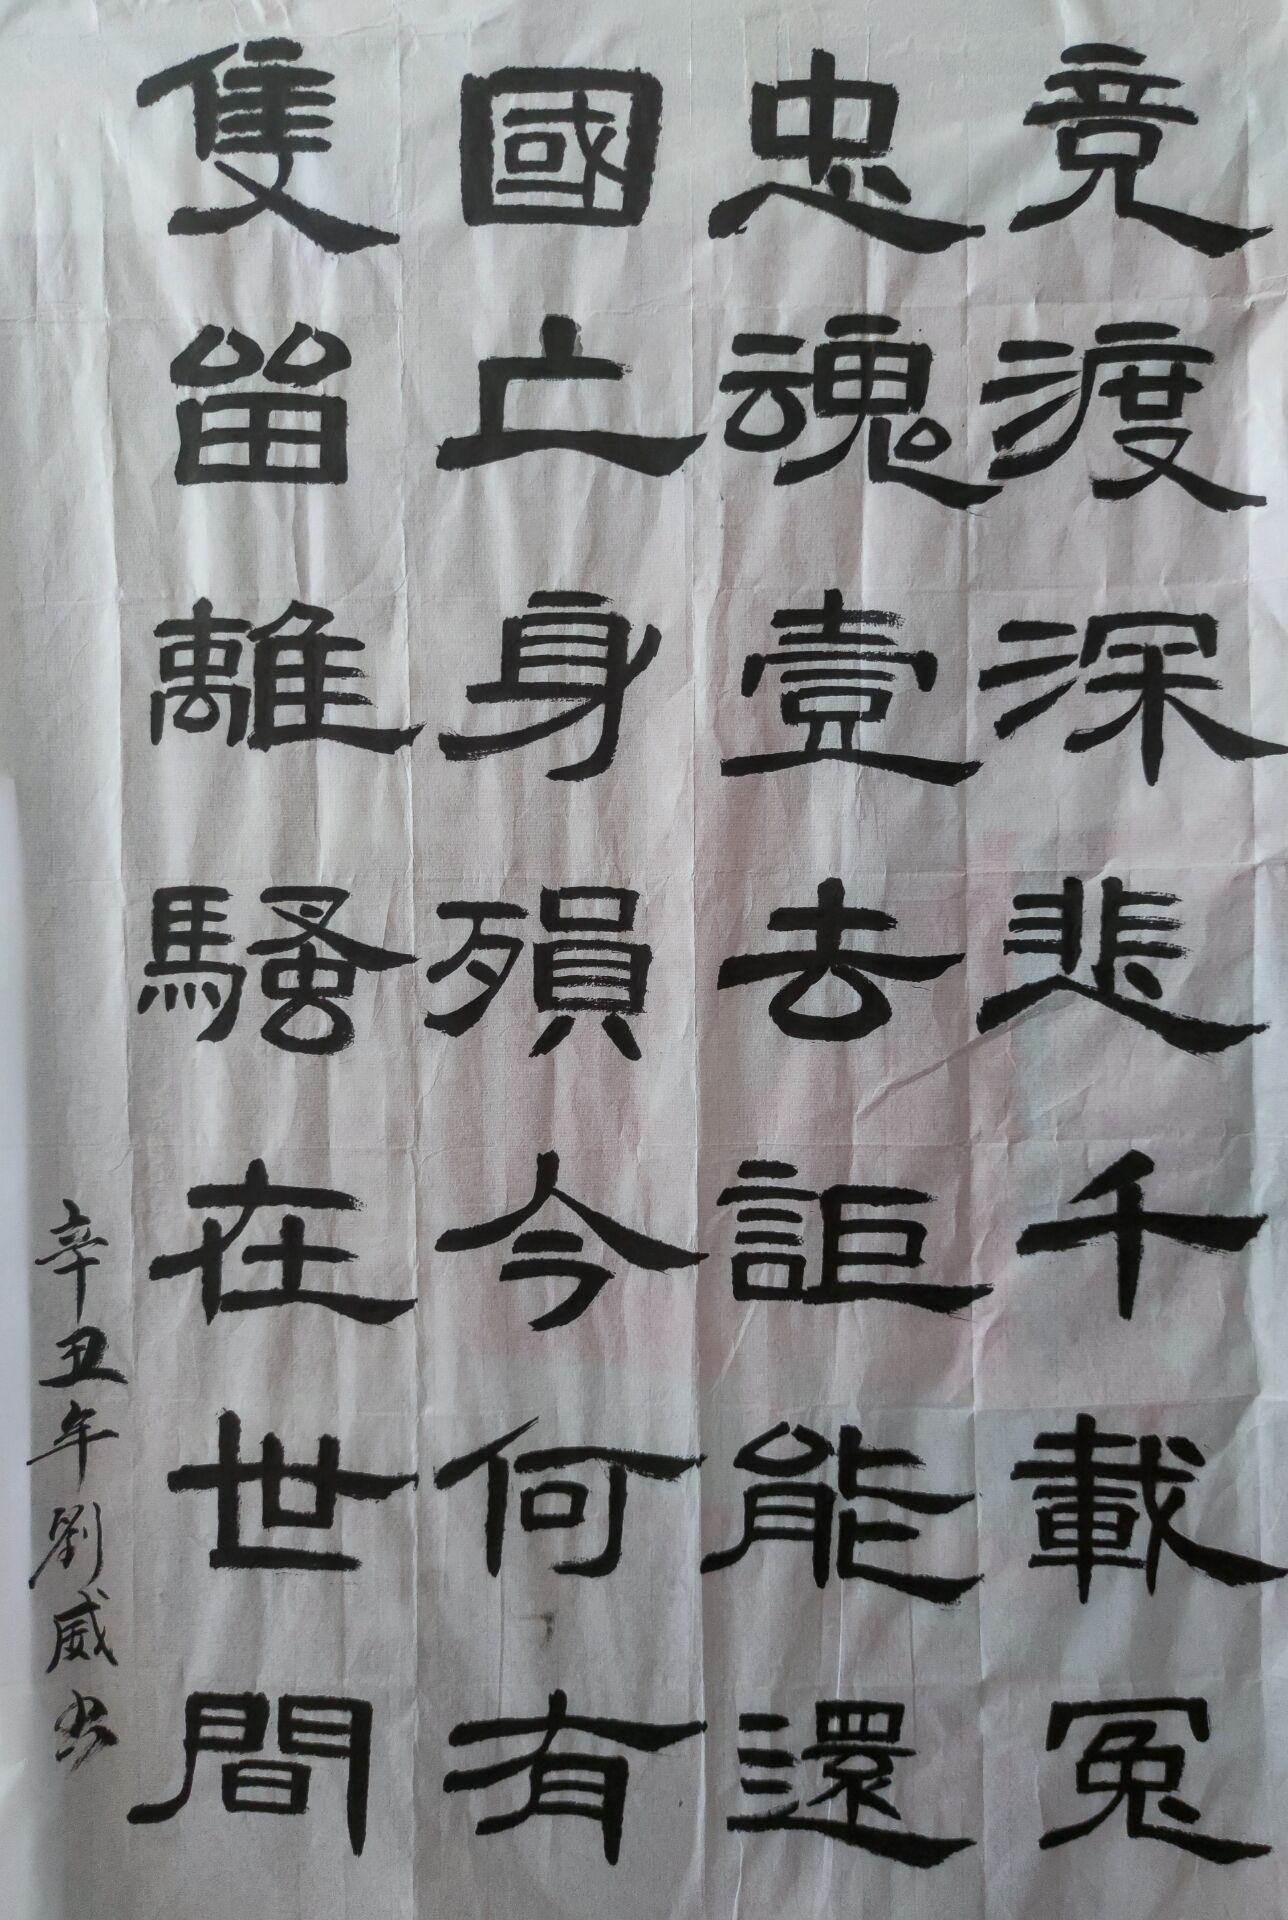 竞渡深悲千載冤
忠魂壹去詎能還
國亡身殞今何有
隻留離騷在世間
辛丑年劉威书